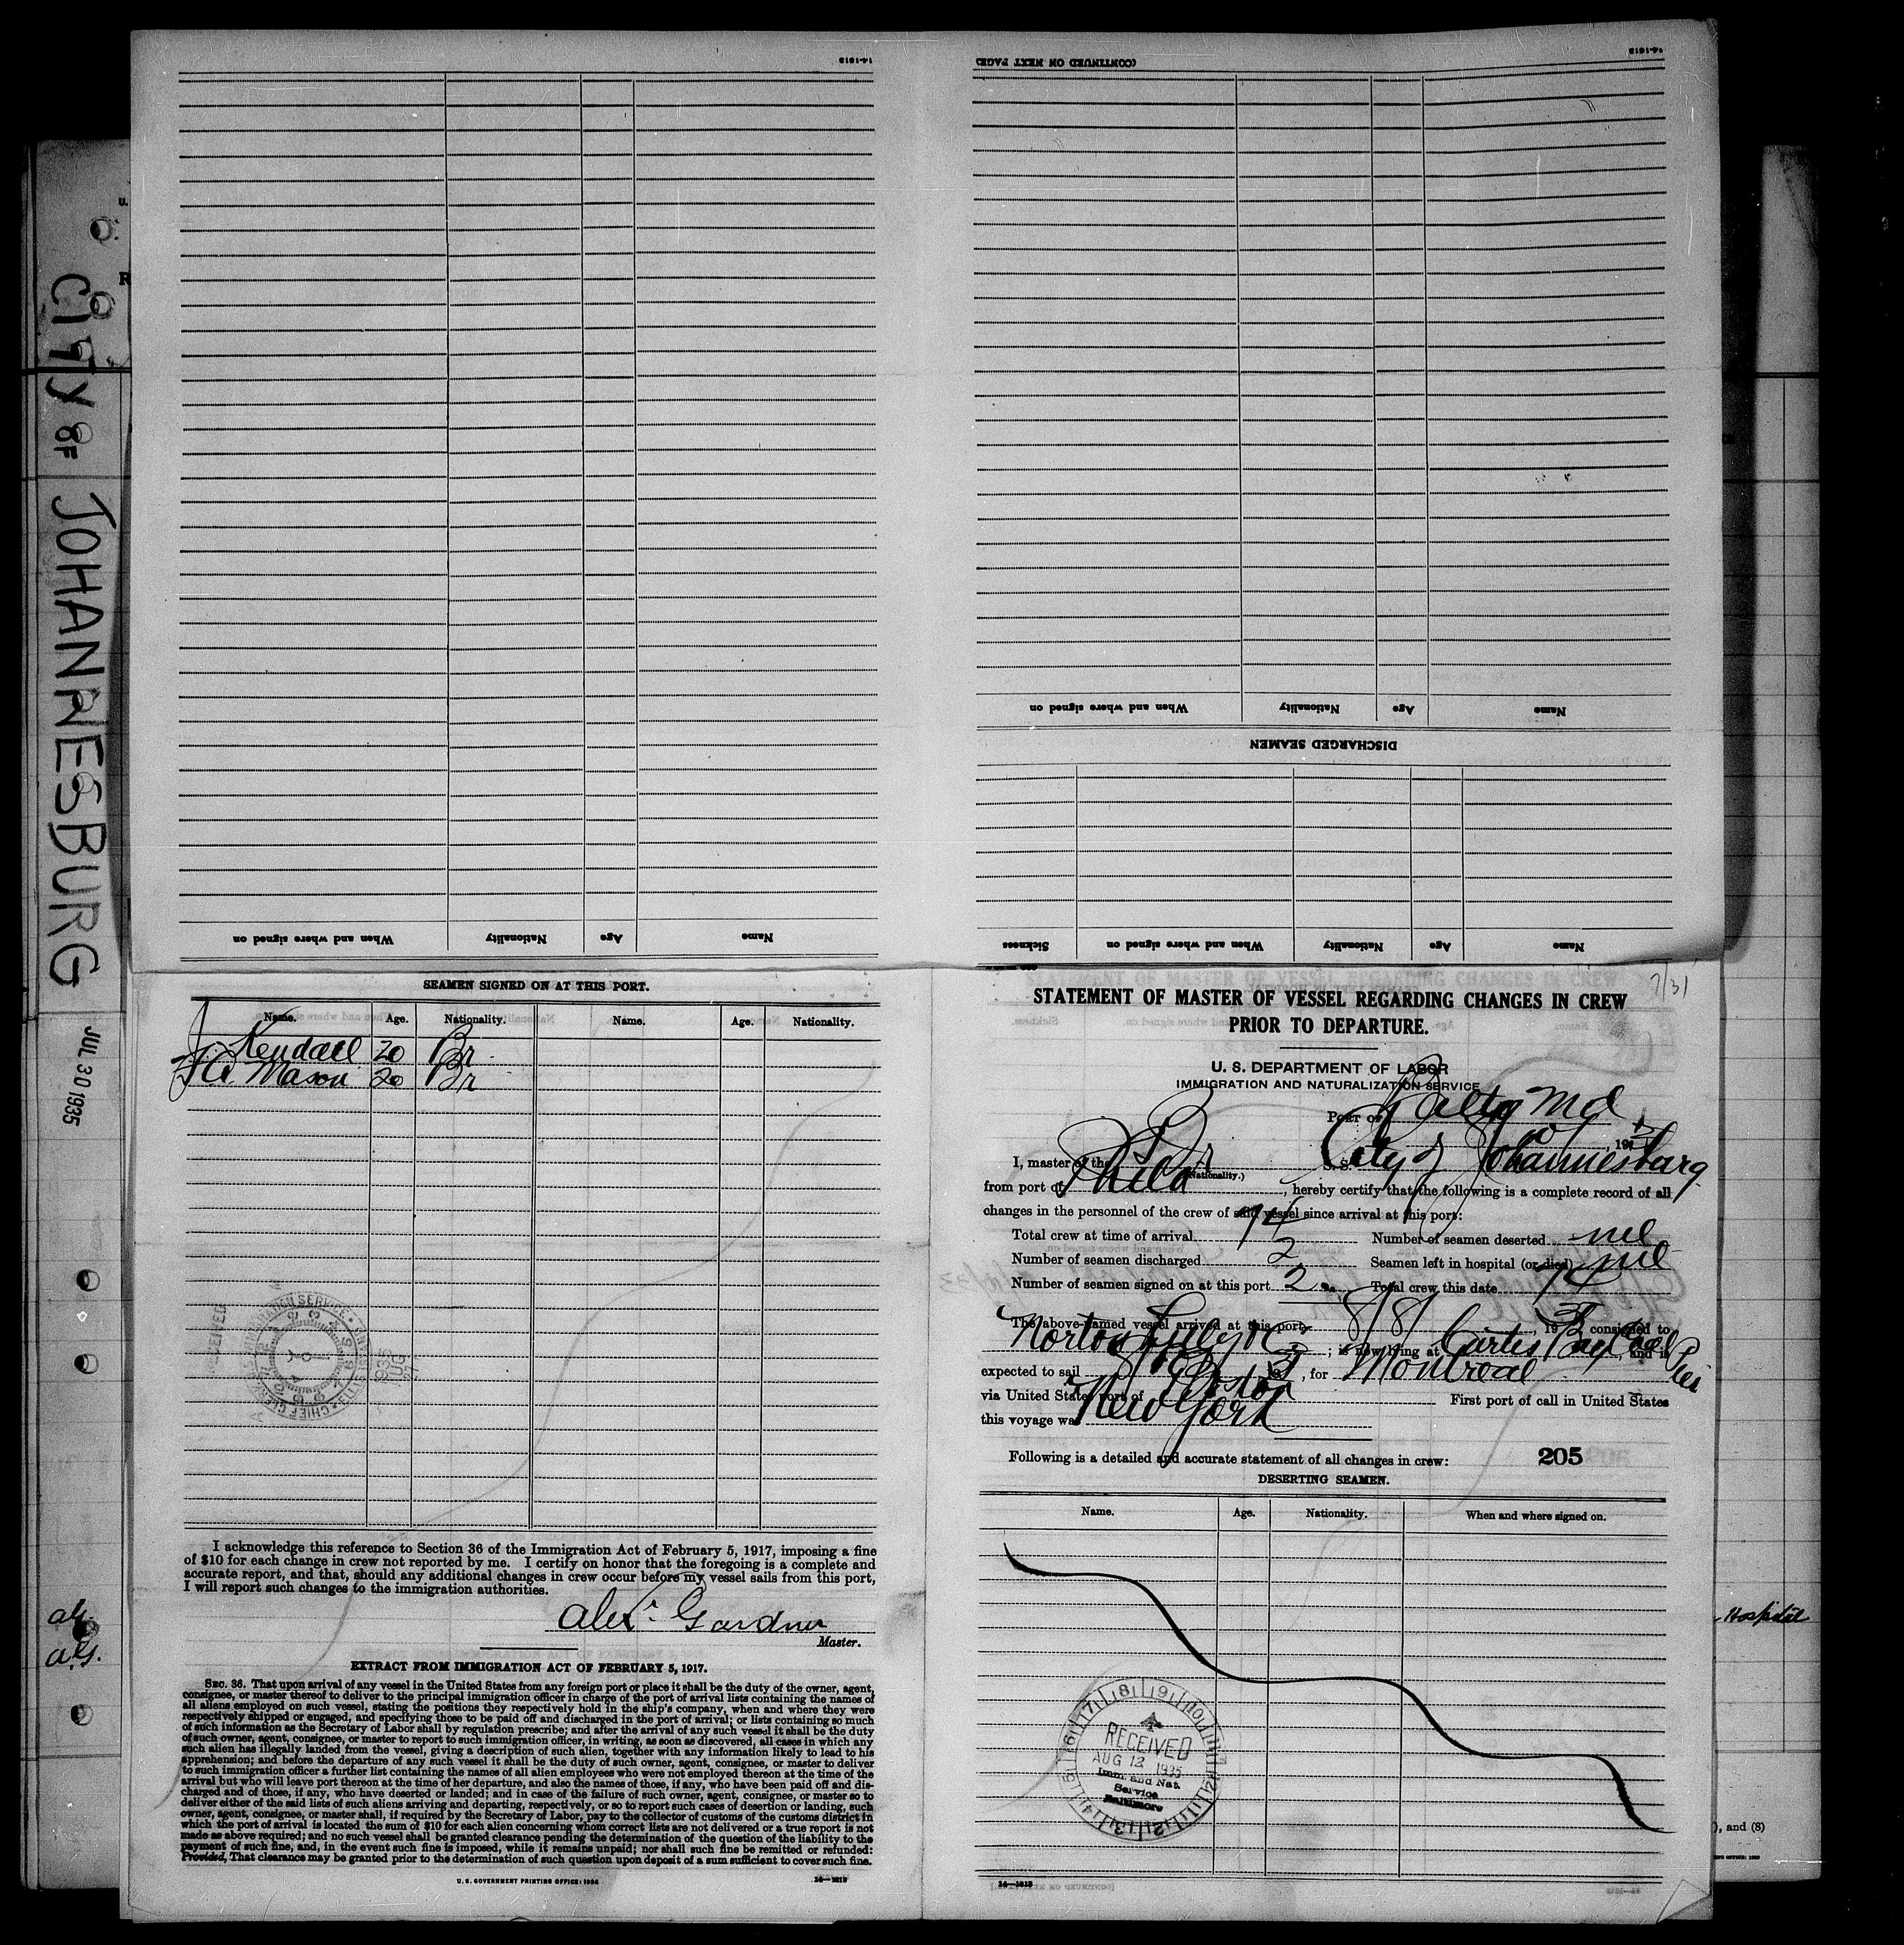 14-1613
When and where signed on Nationality Age Name
14-1613
(CONTINUED ON NEXT PAGE)
When and where signed on Nationality Age Name
DISCHARGED SEAMEN
Sickness When and where signed on Nationality Age Name
CITY OF JOHANNESBURG
JUL 30 1935
a.G.
a.G.
SEAMEN SIGNED ON AT THIS PORT.
Name. Age. Nationality. Name. Age. Nationality.
J. Kendall 20 Br
Mason 20 Br
I acknowledge this reference to Section 36 of the Immigration Act of February 5, 1917, imposing a fine
of $10 for each change in crew not reported by me. I certify on honor that the foregoing is a complete and
accurate report, and that, should any additional changes in crew occur before my vessel sails from this port,
I will report such changes to the immigration authorities.
Alexr. Gardner
Master.
EXTRACT FROM IMMIGRATION ACT OF FEBRUARY 5, 1917.
SEC. 36. That upon arrival of any vessel in the United States from any foreign port or place it shall be the duty of the owner, agent,
consignee, or master thereof to deliver to the principal immigration officer in charge of the port of arrival lists containing the names of
all aliens employed on such vessel, stating the positions they respectively hold in the ship's company, when and where they were
respectively shipped or engaged, and specifying those to be paid off and discharged in the port of arrival; or lists containing so much
of such information as the Secretary of Labor shall by regulation prescribe; and after the arrival of any such vessel it shall be the duty
of such owner, agent, consignee, or master to report to such immigration officer, in writing, as soon as discovered, all cases in which any
such alien has illegally landed from the vessel, giving a description of such alien, together with any information likely to lead to his
apprehension; and before the departure of any such vessel it shall be the duty of such owner, agent, consignee, or master to deliver
to such immigration officer a further list containing the names of all alien employees who were not employed thereon at the time of the
arrival but who will leave port thereon at the time of her departure, and also the names of those, if any, who have been paid off and dis-
charged and of those, if any, who have deserted or landed; and in case of the failure of such owner, agent, consignee, or master so to
deliver either of the said lists of such aliens arriving and departing, respectively, or so to report such cases of desertion or landing, such
owner, agent, consignee, or master shall, if required by the Secretary of Labor, pay to the collector of customs of the customs district in
which the port of arrival is located the sum of $10 for each alien concerning whom correct lists are not delivered or a true report is not
made as above required; and no such vessel shall be granted clearance pending the determination of the question of the liability to the
payment of such fine, and, in the event such fine is imposed, while it remains unpaid; nor shall such fine be remitted or refunded:
Provided, That clearance may be granted prior to the determination of such question upon deposit of a sum sufficient to cover such fine.
U. S. GOVERNMENT PRINTING OFFICE: 1934 14—1613
7/31
STATEMENT OF MASTER OF VESSEL REGARDING CHANGES IN CREW
PRIOR TO DEPARTURE.
U. S. DEPARTMENT OF LABOR
IMMIGRATION AND NATURALIZATION SERVICE
PORT OF Balto Md
193
I, master of the Br (Nationality.) S. S. City of Johannesburg
from port of Phila, hereby certify that the following is a complete record of all
changes in the personnel of the crew of said vessel since arrival at this port:
Total crew at time of arrival 74 Number of seamen deserted nil
Number of seamen discharged 2 Seamen left in hospital (or died) nil
Number of seamen signed on at this port 2 Total crew this date 74
The above-named vessel arrived at this port 8/8, 1935, consigned to
Norton Lilly & Co; is now lying at Curtis Bay Coal Pier, and is
expected to sail, for Montreal
via United States port of Boston First port of call in United States
this voyage was New York
Following is a detailed and accurate statement of all changes in crew: 205
DESERTING SEAMEN.
Name. Age. Nationality. When and where signed on.
RECEIVED
AUG 12 1935
Imm. and Nat.
Service
Baltimore
14—1613
Hospital
), and (8)